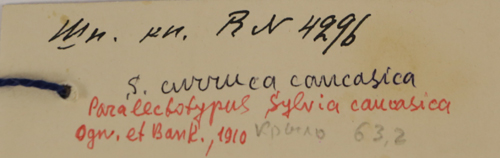 Шп. кп. R N 4296
S. curruca caucasica
Paralectotypus Sylvia caucasica
Ogn. et Bank., 1910 крыло 63,2